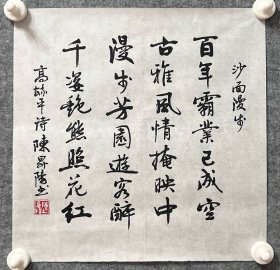 沙面漫步
百年霸業已成空
古雅風情掩映中
漫步芳園遊客醉
千姿艷態照花紅
高齡平詩陳昇陽书